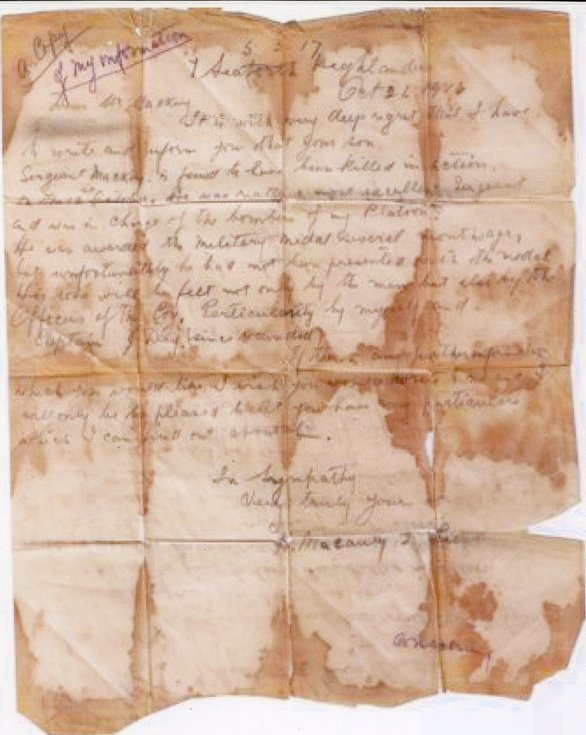 A Copy
of my information
5 . 17
7 Seaforth Highlanders
Oct 26 1916
Dear Mr Mackay
It is with very deep regret that I have
to write and inform you that your son
Sergeant Mackay is found to have been killed in action.
He was really a most excellent Sergeant
and was in charge of the bombers of my Platoon.
He was awarded the military medal several months ago,
but unfortunately he had not been presented with the medal
His loss will be felt not only by the men but also by the
Officers of the Coy. Particularly by myself and
Captain J Day (since wounded)
If there any further information
which you would like, I wish you
will only be too pleased to let you have any particulars
which I can find out about him.
In Sympathy
Very truly yours
Macauly